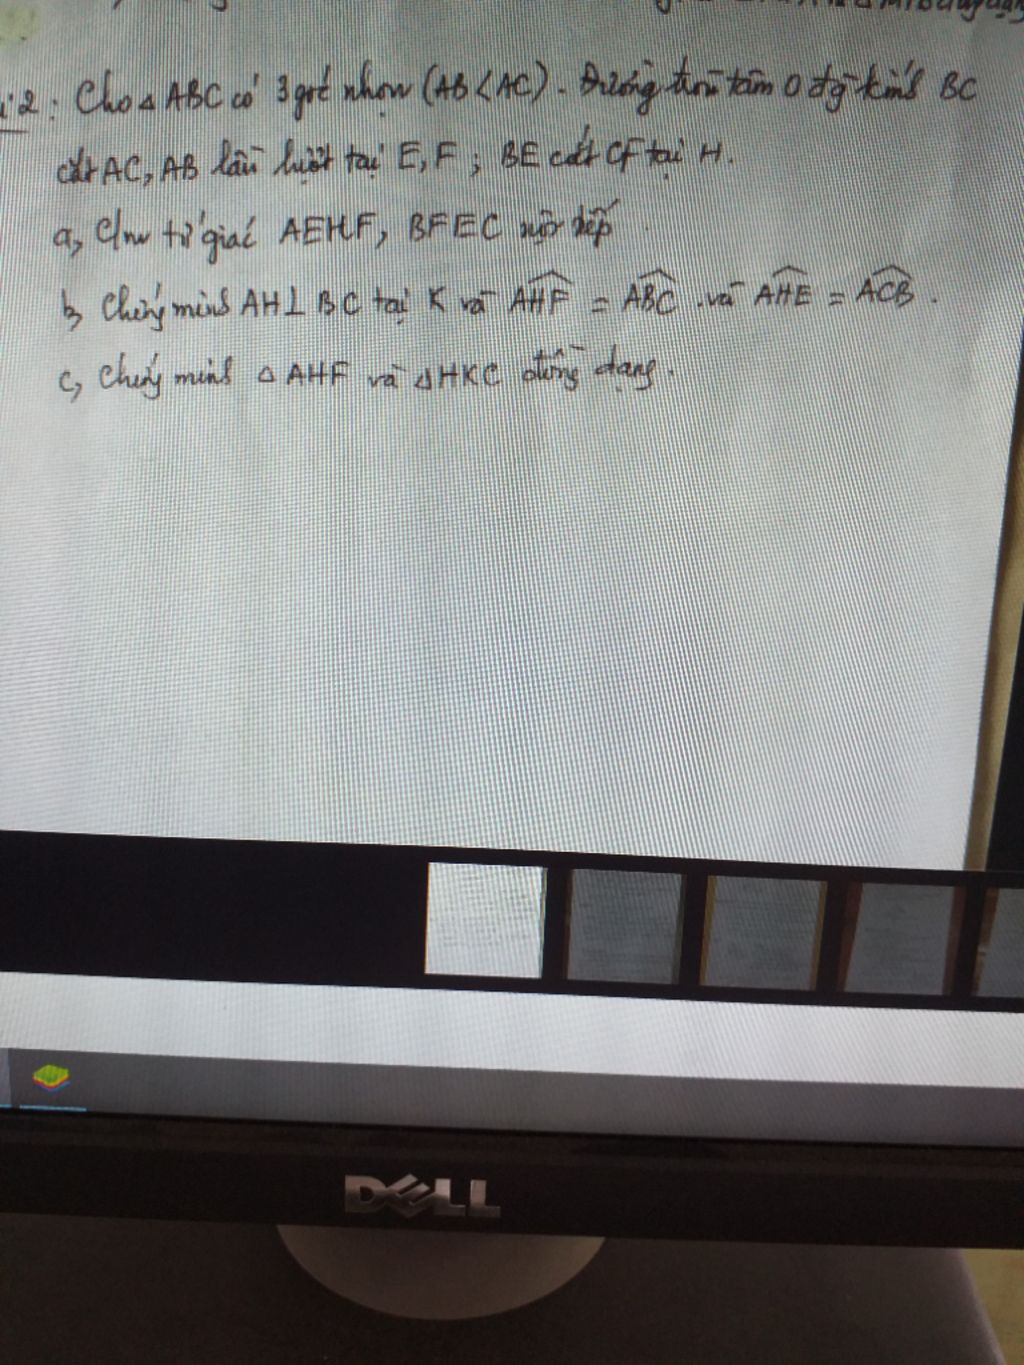 2: Cho △ ABC có 3 góc nhọn (AB < AC). Đường tròn tâm O đg kính BC
cắt AC, AB lần lượt tại E, F; BE cắt CF tại H.
a, Cm tứ giác AEHF, BFEC nội tiếp
b, Chứng minh AH ⊥ BC tại K và AHF = ABC và AHE = ACB.
c, Chứng minh △ AHF và △ HKC đồng dạng.
DELL